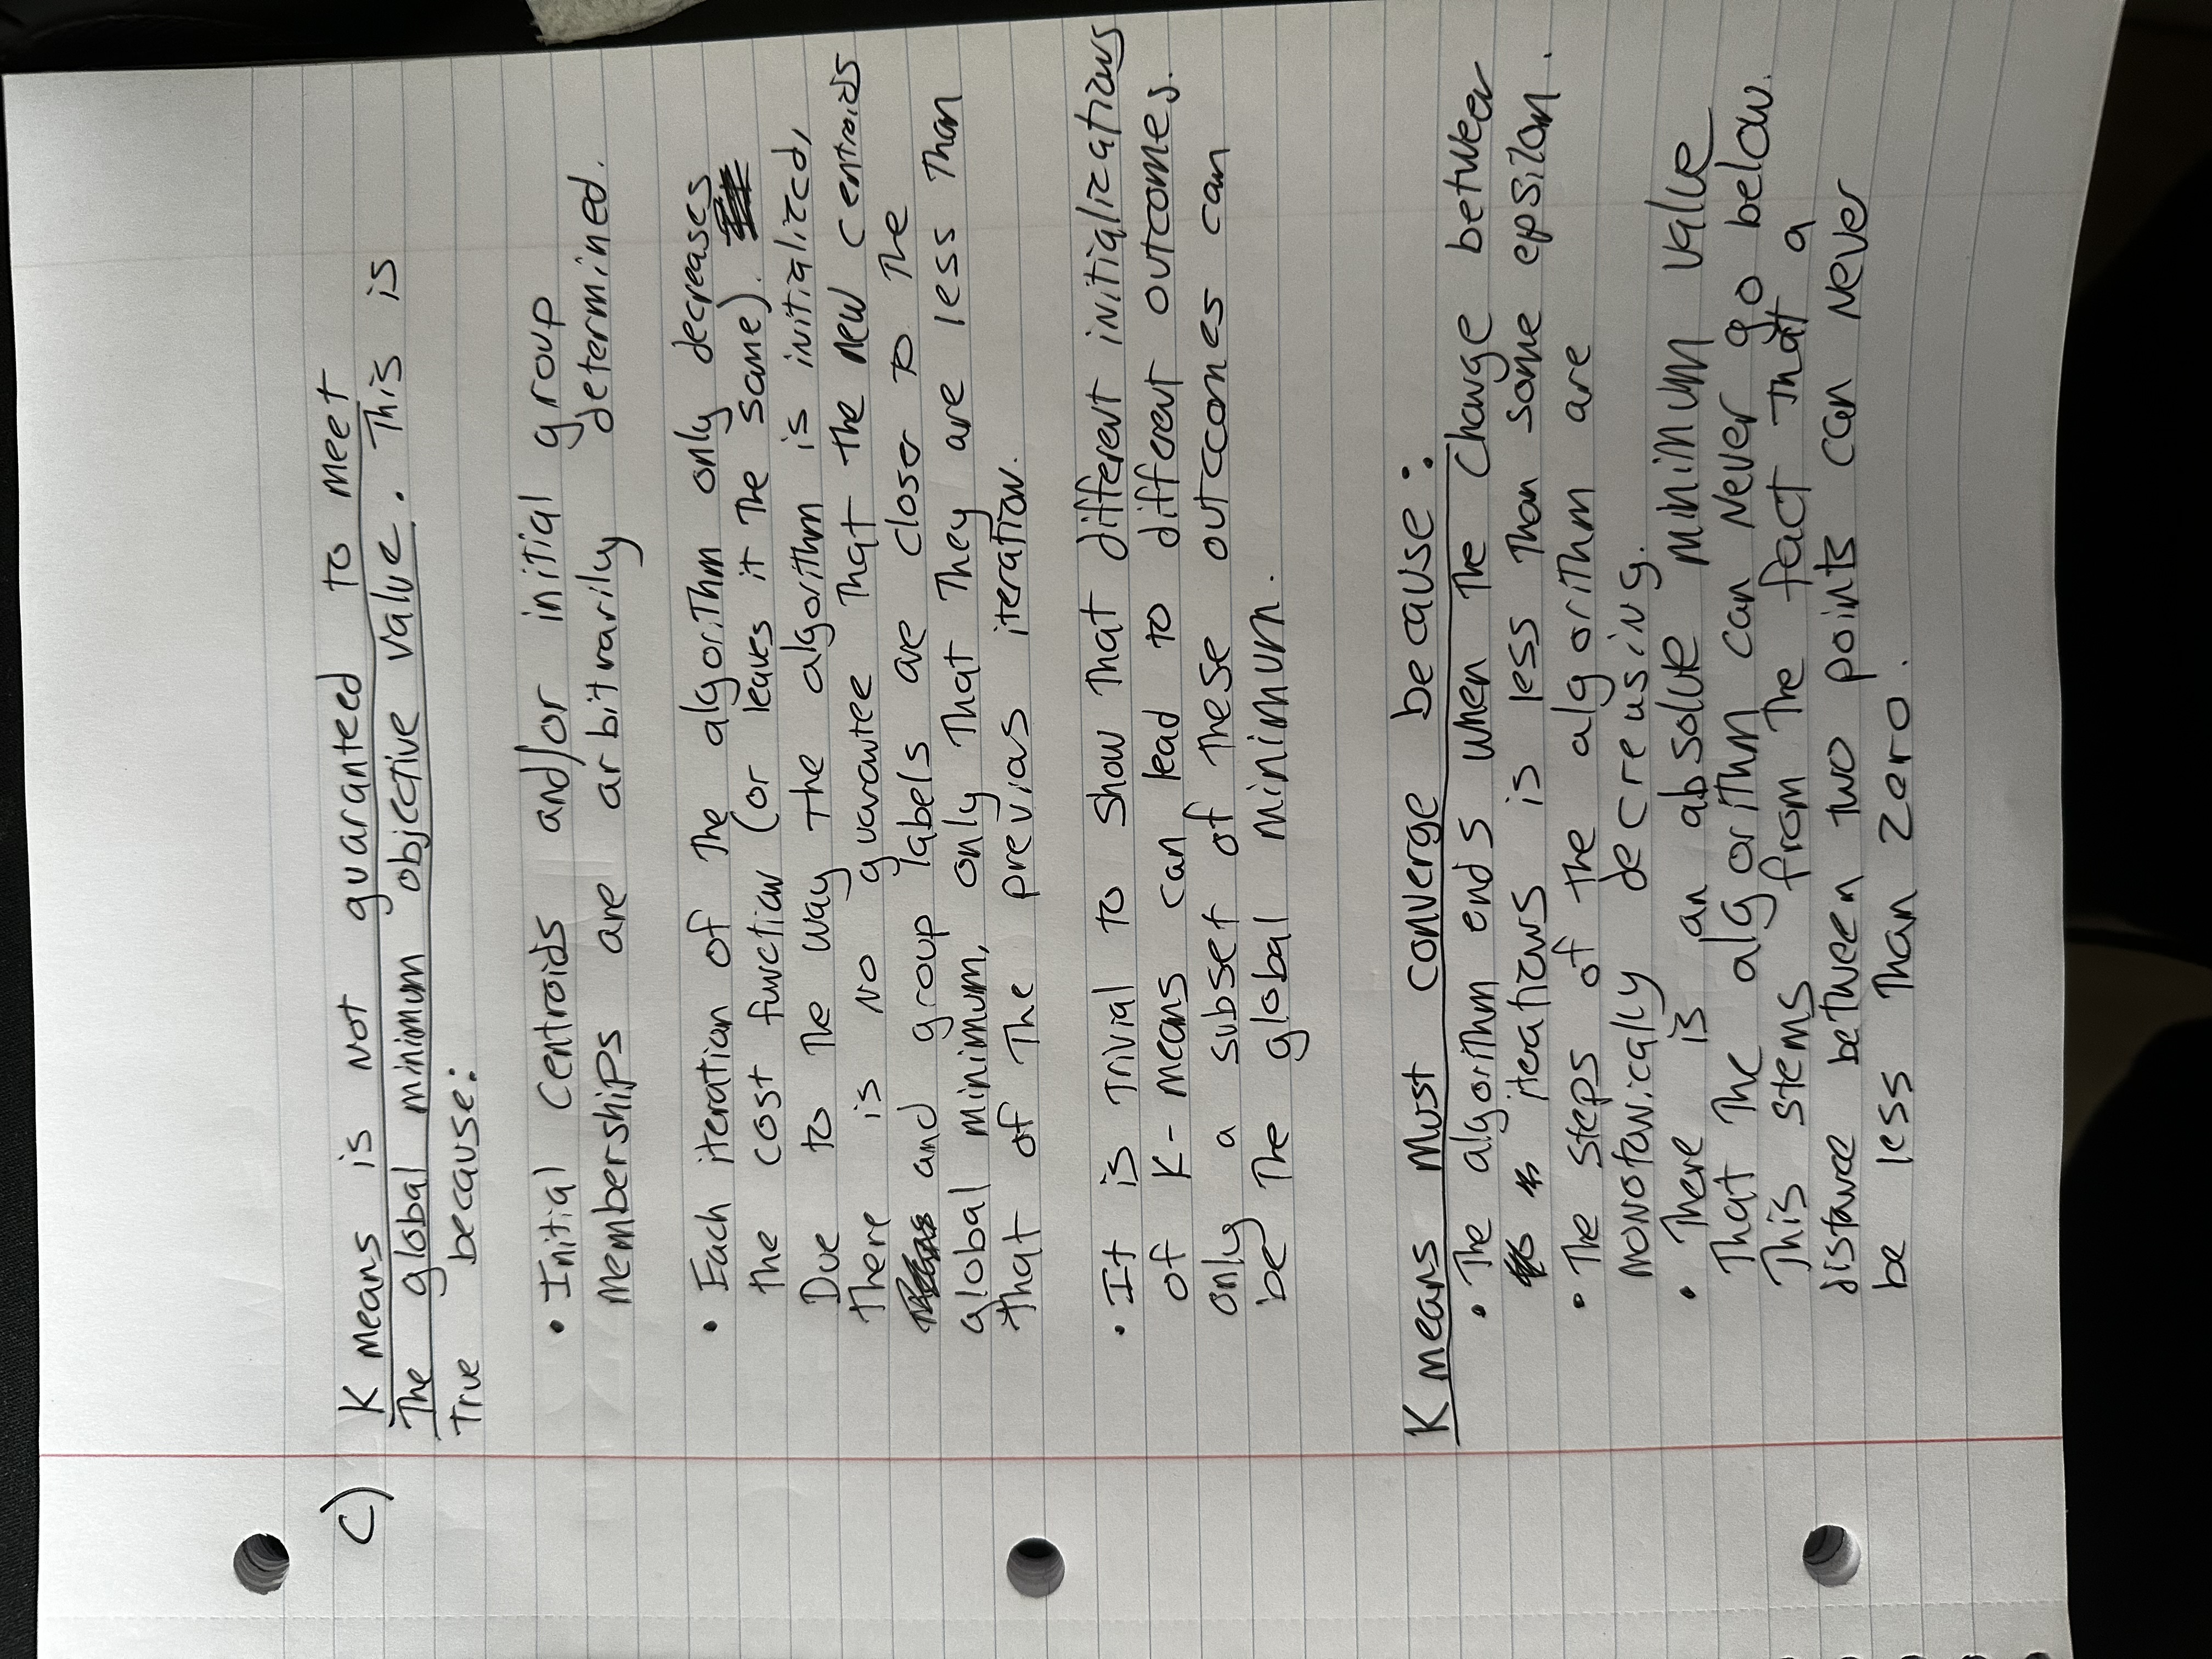 C) K means is not guaranteed to meet
The global minimum objective value. This is
True because:
• Initial centroids and/or initial group
memberships are arbitrarily determined.
• Each iteration of the algorithm only decreases
the cost function (or leaves it the same).
Due to the way the algorithm is initialized,
there is no guarantee that the new centroids
and group labels are closer to the
global minimum, only that they are less than
that of the previous iteration.
• It is trivial to show that different initializations
of K-means can lead to different outcomes.
only a subset of these outccomes can
be the global minimum.
K means must converge because:
• The algorithm ends when the change between
iterations is less than some epsilon.
• The steps of the algorithm are
monotonically decreasing.
• There is an absolute minimum value
that the algorithm can never go below.
This stems from the fact that a
distance between two points can never
be less than zero.